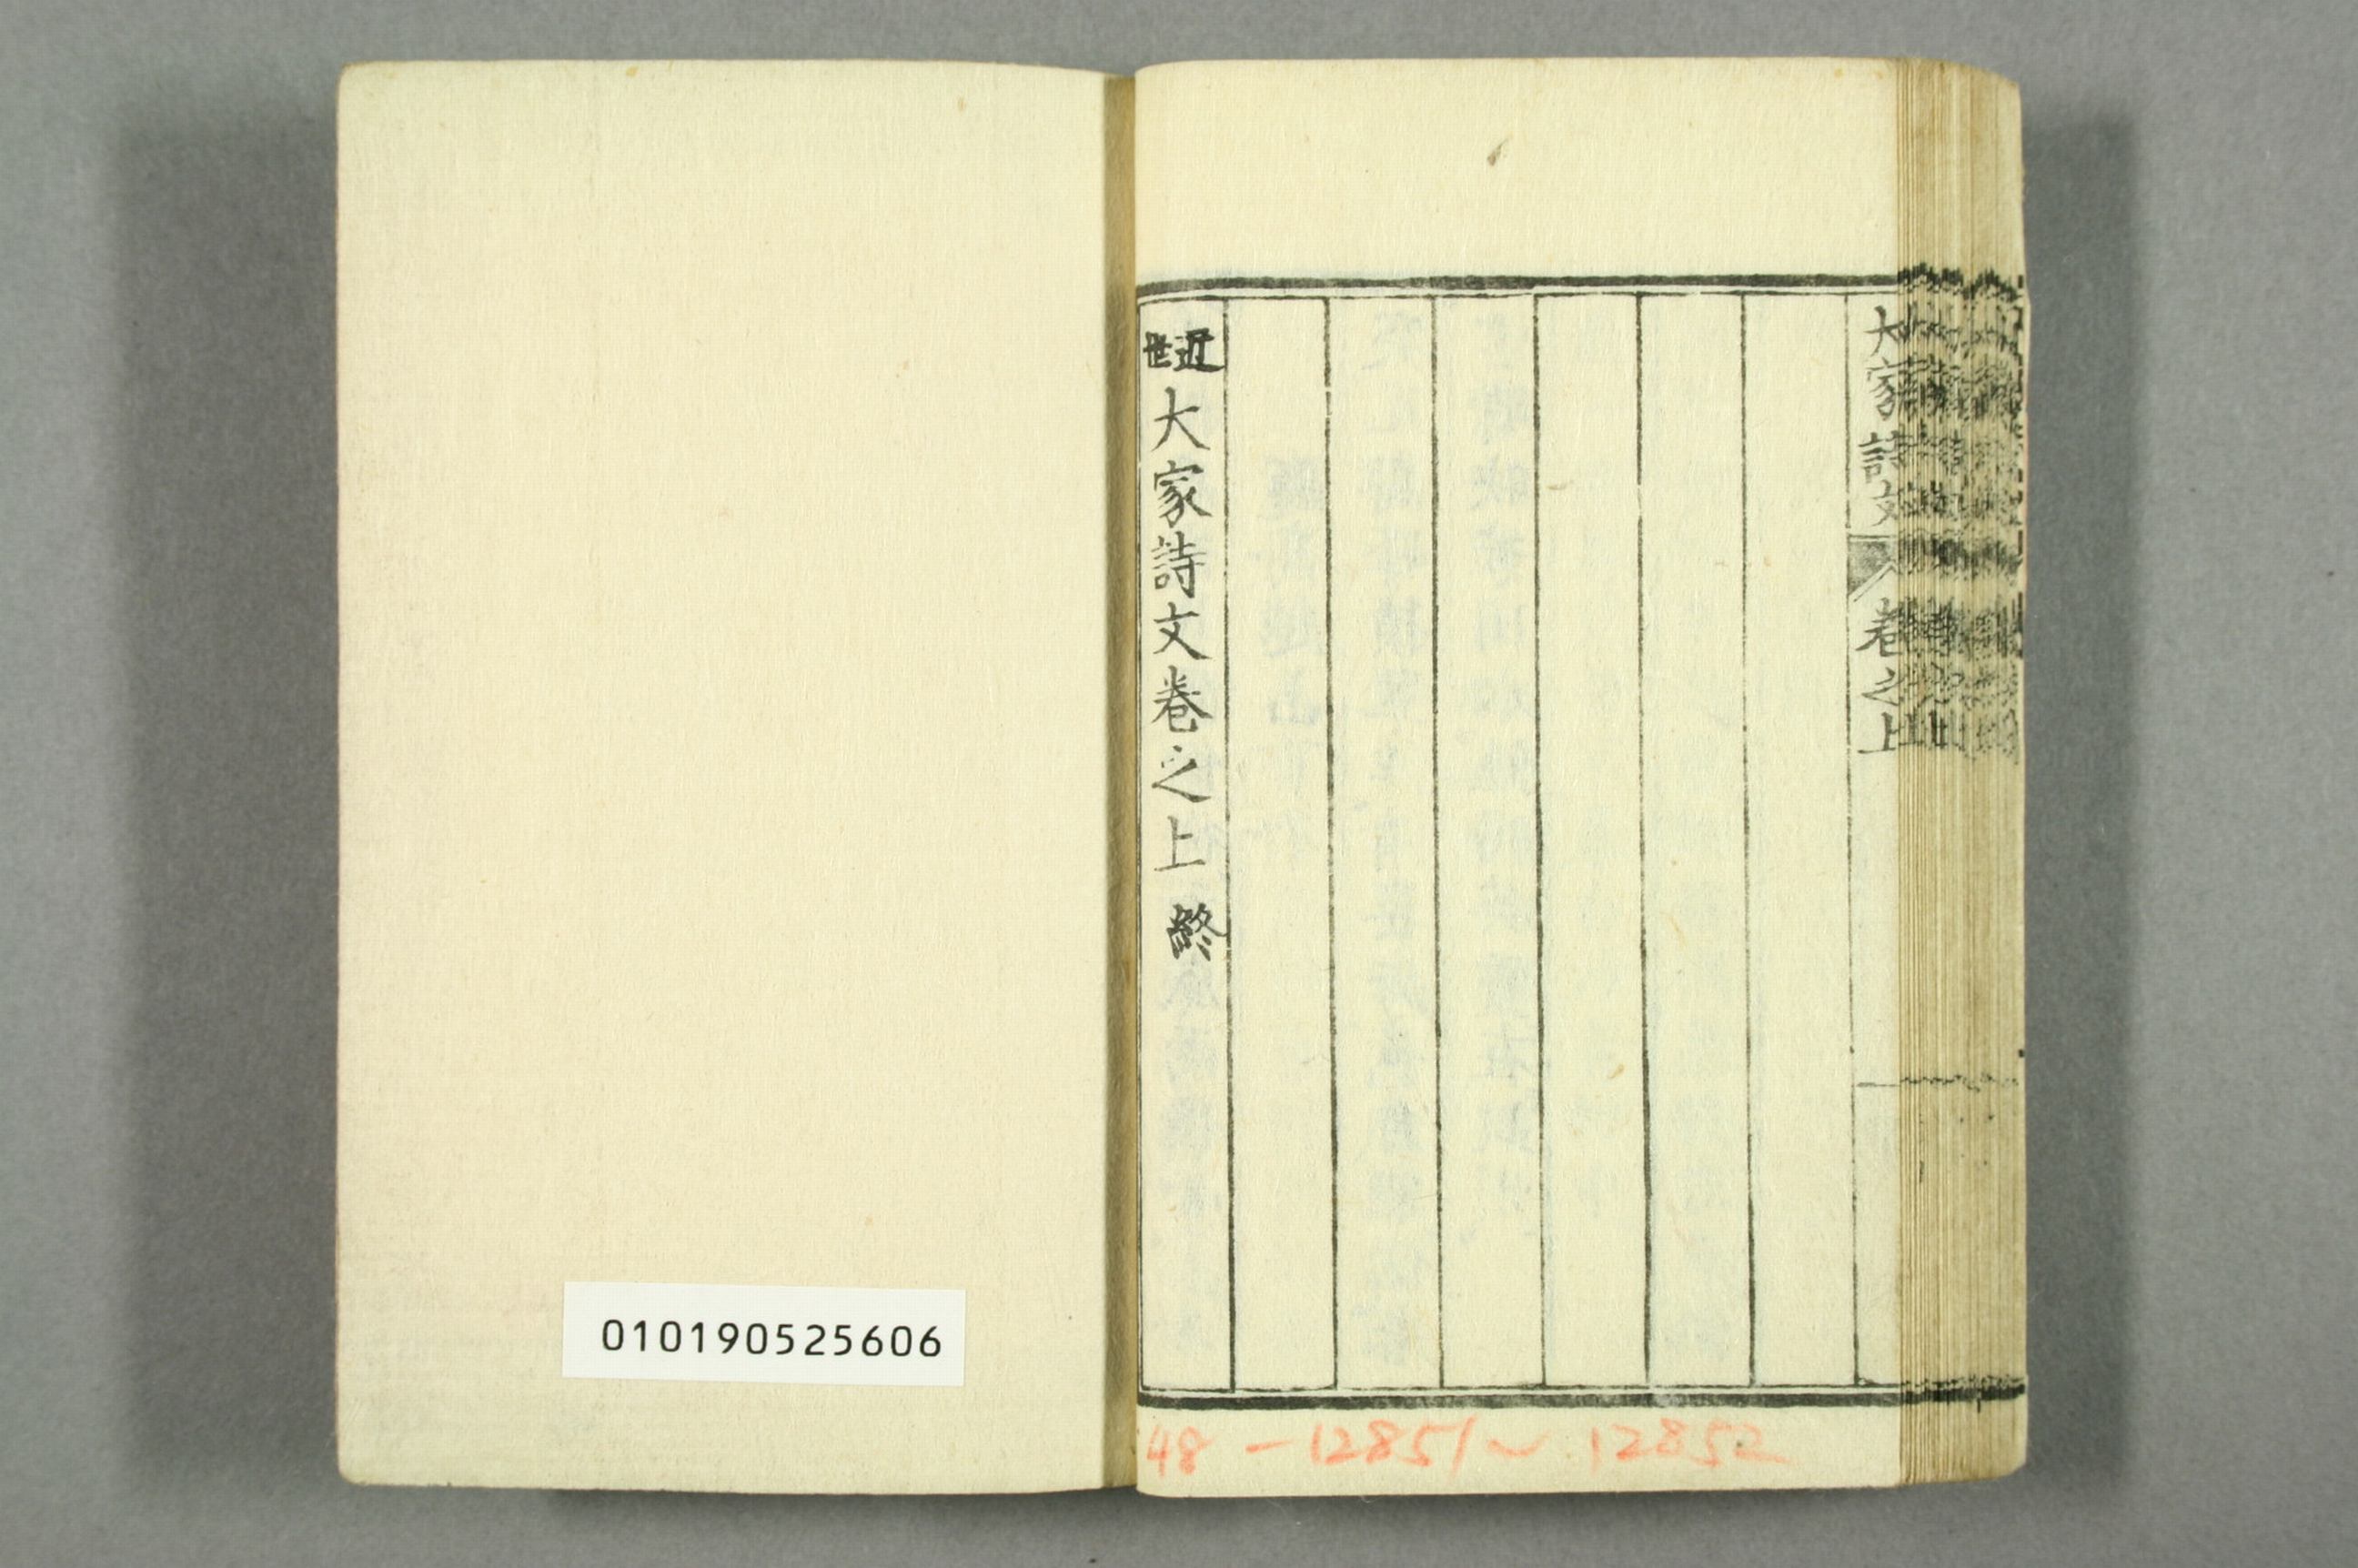 大家詩文 卷之上
近世大家詩文卷之上 終
48-12851~12852
010190525606